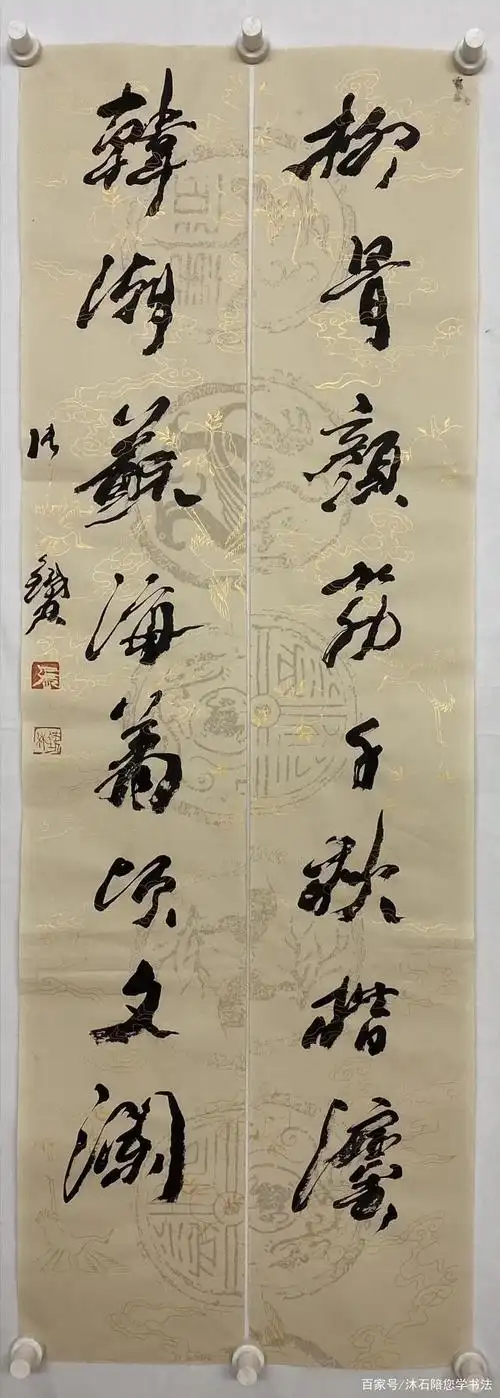 柳骨顏筋千秋楷灋
韓潮蘇海萬頃文瀾
张
百家号/沐石陪您学书法